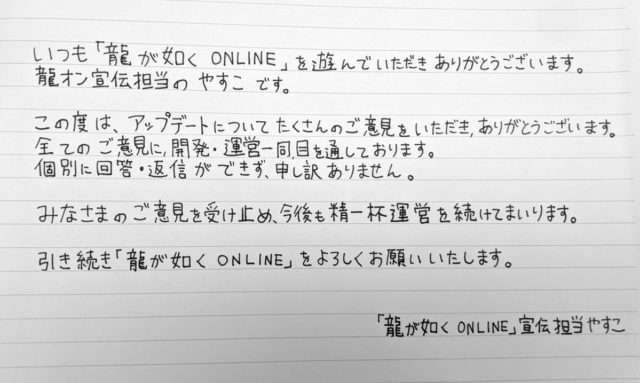 いつも「龍が如く ONLINE」を遊んでいただきありがとうございます。
龍オン宣伝担当の やすこ です。
この度は、アップデートについてたくさんのご意見をいただき、ありがとうございます。
全てのご意見に、開発・運営一同、目を通しております。
個別に回答・返信ができず、申し訳ありません。
みなさまのご意見を受け止め、今後も精一杯運営を続けてまいります。
引き続き「龍が如く ONLINE」をよろしくお願いいたします。
「龍が如く ONLINE」宣伝担当やすこ